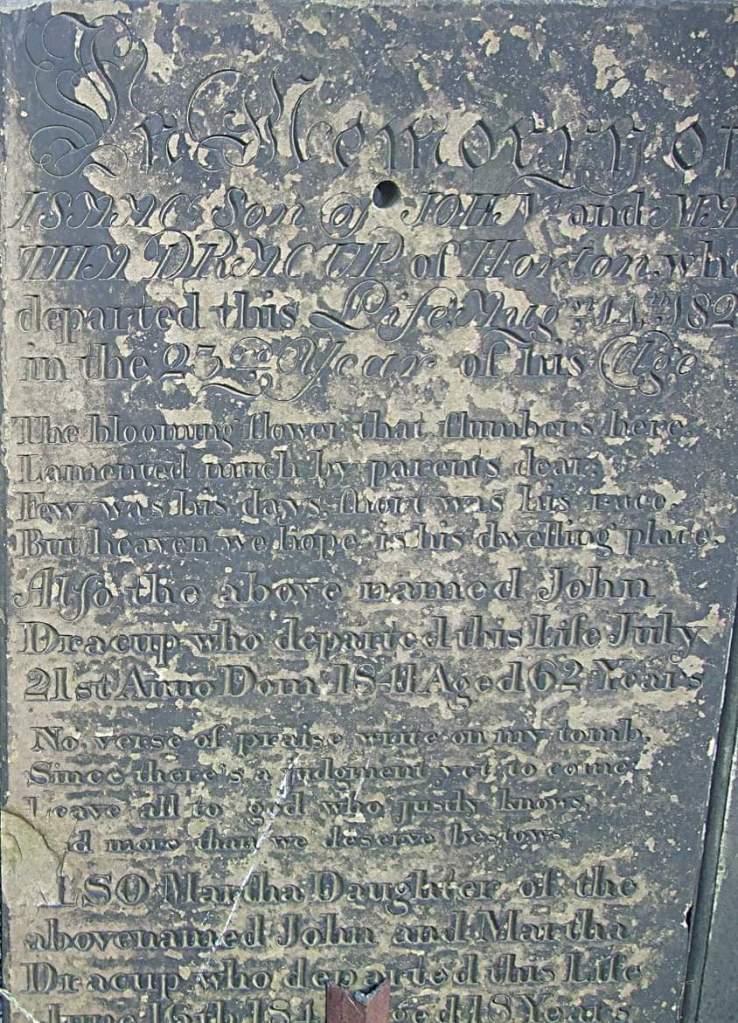 In Memory of
ISAAC Son of JOHN and MAR
THA DRACUP of Horton, who
departed this Life Aug.st 14.th 182
in the 23.rd Year of his Age
The blooming flower that slumbers here,
Lamented much by parents dear;
Few was his days, short was his race,
But heaven we hope is his dwelling place.
Also the above named John
Dracup who departed this Life July
21st Anno Dom 1841 Aged 62 Years
No verse of praise write on my tomb,
Since there's a judgment yet to come
Leave all to god who justly knows,
d more than we deserve bestows
ALSO Martha Daughter of the
abovenamed John and Martha
Dracup who departed this Life
June 16th 184 ged 18 Years